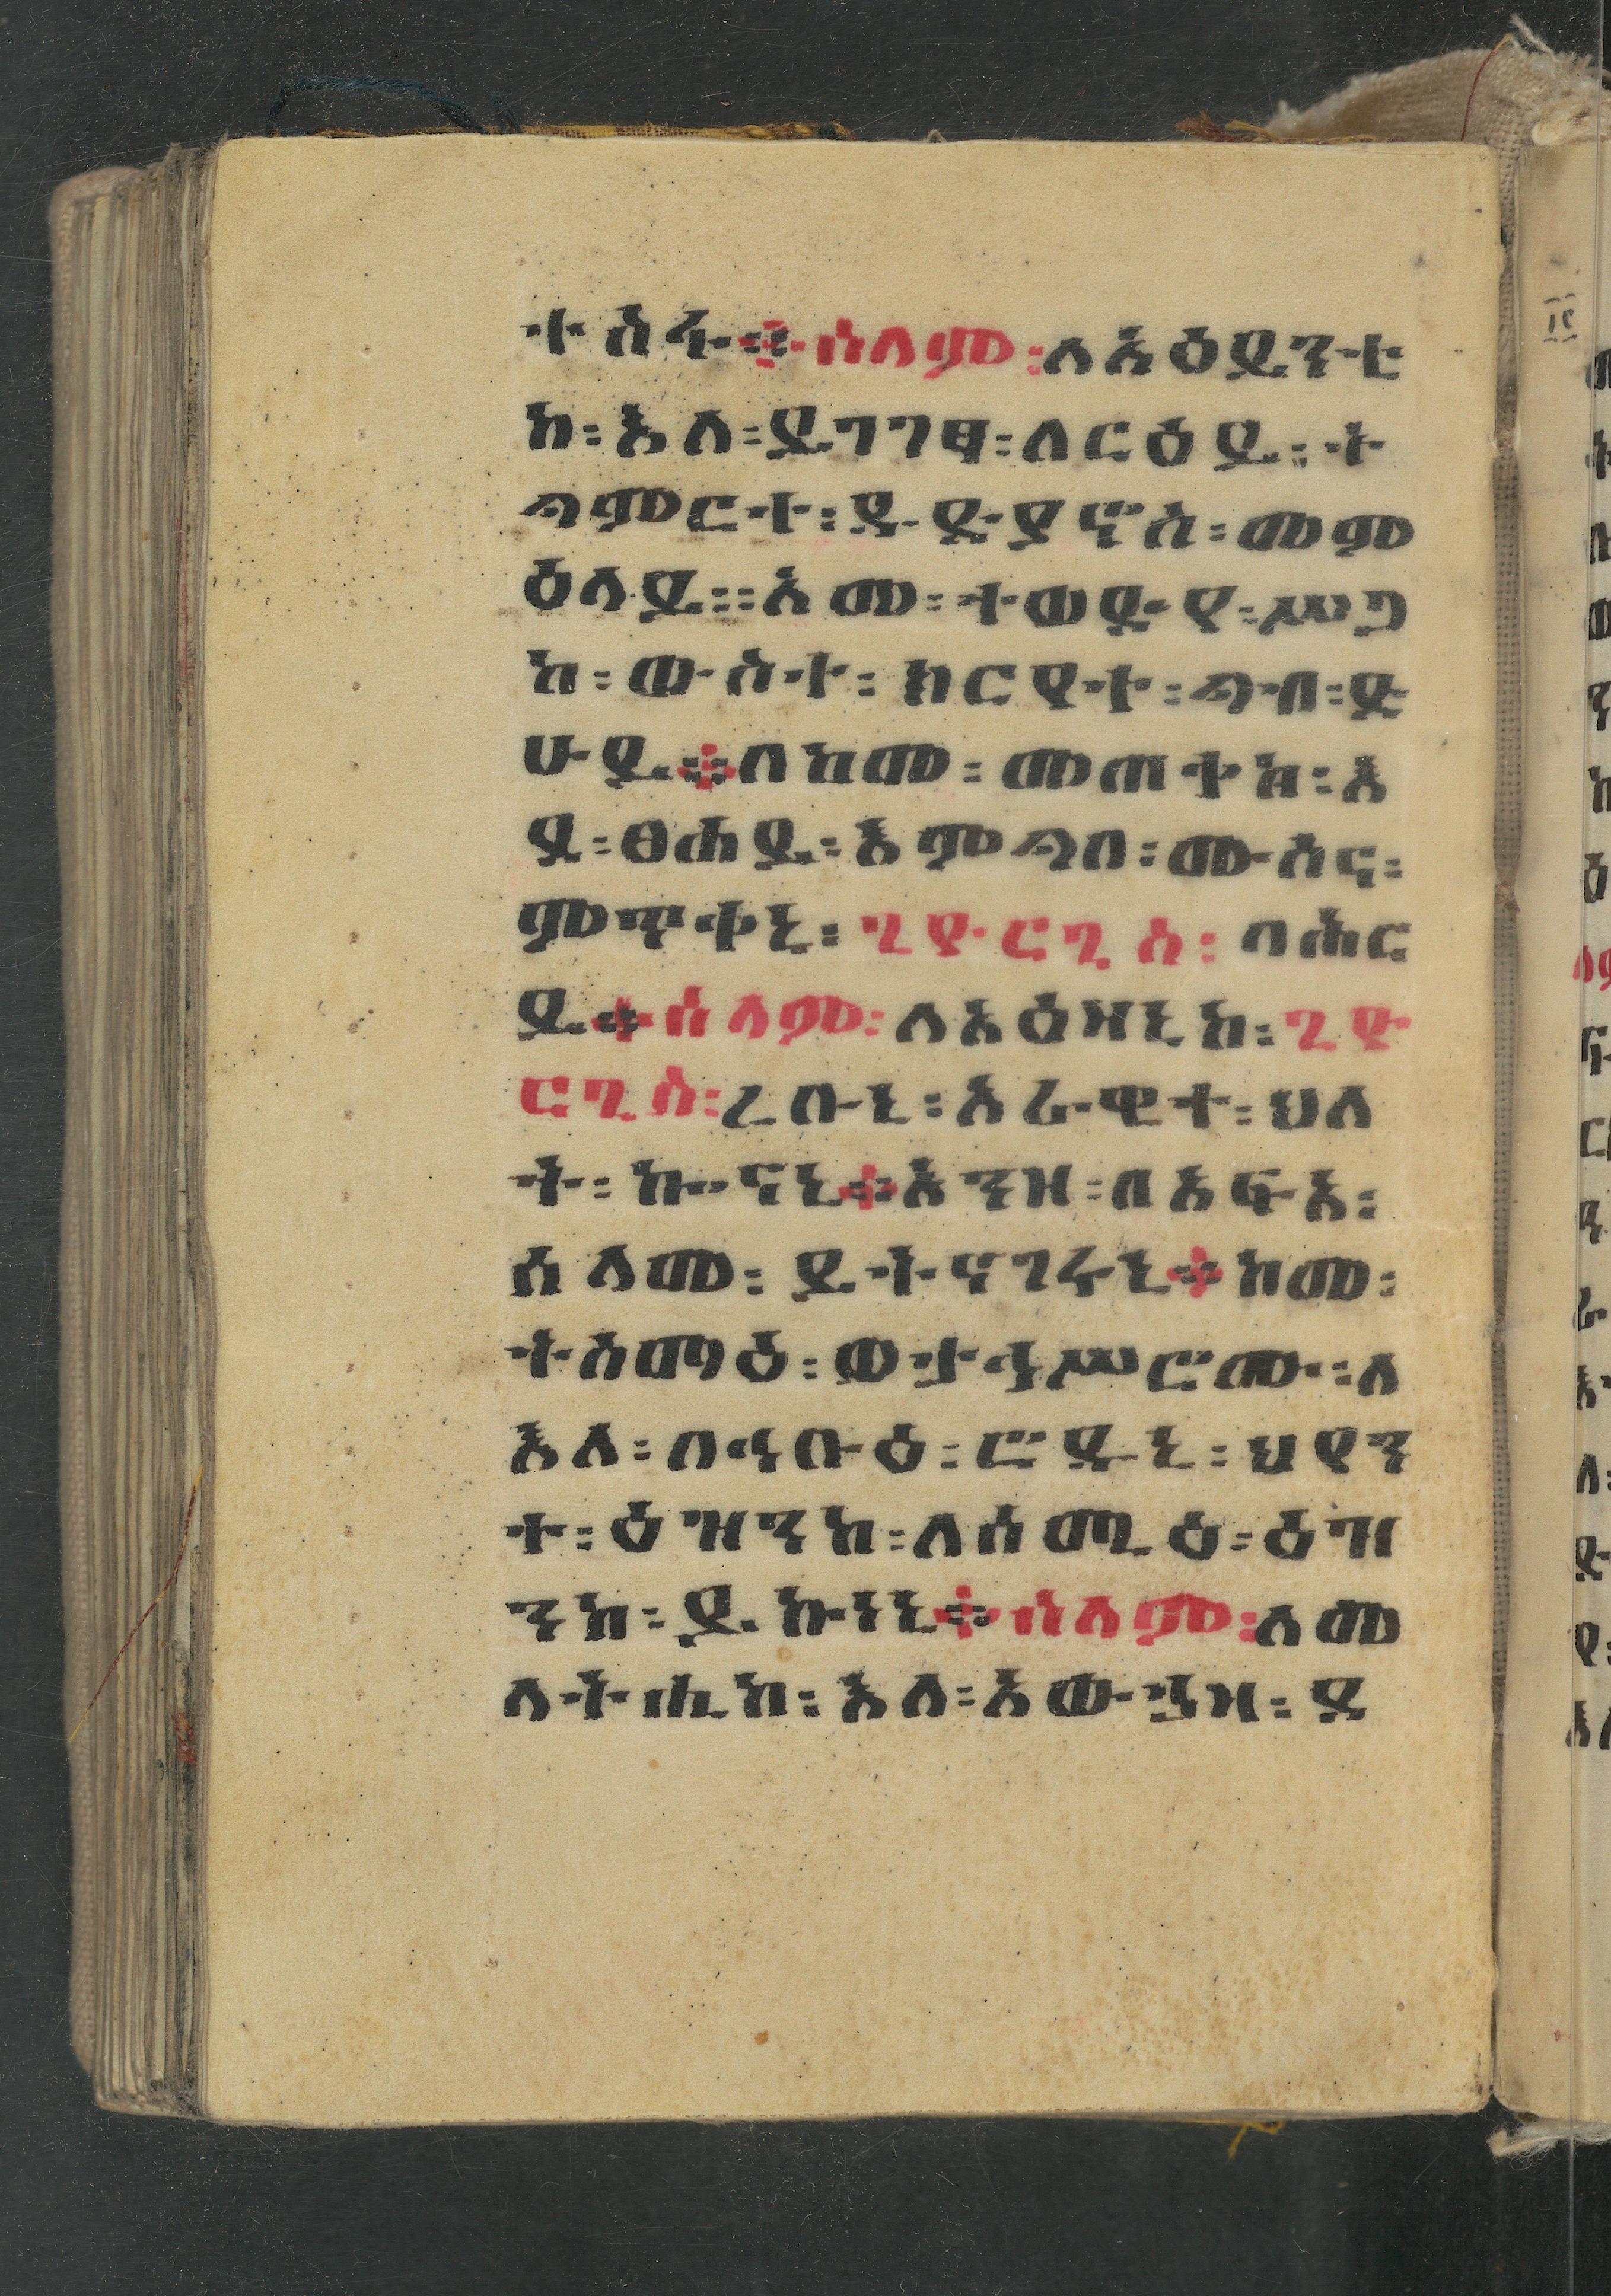 ተስፋ፨ሰላም፡ለአዕይንቲ
ከ፡እለ፡ይገገፃ፡ለርዕይ፡ት
ዕምርተ፡ዲድያኖስ፡መም
ዕላይ፡፡አመ፡ተወድየ፡ሥጋ
ከ፡ውስተ፡ከርየት፡ዕብ፡ድ
ሁይ፨ለከመ፡መጠቅከ፡እ
ዳ፡ፀሐይ፡እምዕበ፡ሙስና፡
ምጥቀኒ፡ጊዮርጊስ፡ባሕር
ይ፨ሰላም፡ለአዕዛኒከ፡ጊዮ
ርጊስ፡ረቡኒ፡አራዊተ፡ህላ
ት፡ኰናኒ፨እንዘ፡በአፍአ፡
ሰላመ፡ይትናገሩኒ፨ከመ፡
ትስማዕ፡ወታኅሥርሙ፡ለ
እለ፡በቊቡዕ፡ሦዱኒ፡ህየን
ተ፡ዕዝንከ፡ለሰሚዕ፡ዕዝ
ንከ፡ይኩነኒ፨ሰላም፡ለመ
ላትሒከ፡እለ፡አውኃዛ፡ደ